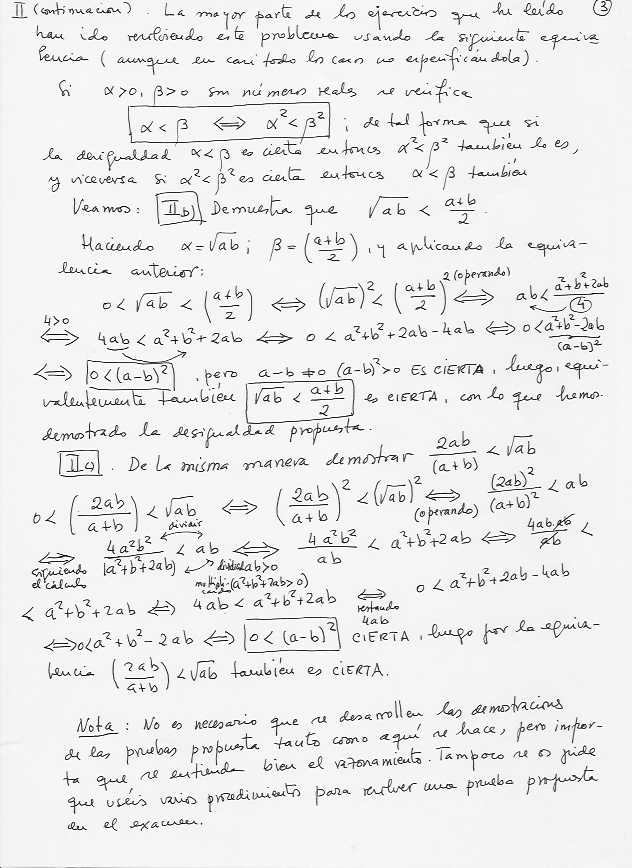 II (continuación). La mayor parte de los ejercicios que he leído ③
han ido resolviendo este problema usando la siguiente equiva
lencia (aunque en casi todo los casos no especificándola).
Si α>0, β>0 son números reales se verifica
α < β ⟺ α² < β² ; de tal forma que si
la desigualdad α<β es cierta entonces α²<β² también lo es,
y viceversa si α²<β² es cierta entonces α<β también
Veamos: II b) Demuestra que √ab < (a+b)/2.
Haciendo α=√ab ; β=((a+b)/2), y aplicando la equiva-
lencia anterior:
0 < √ab < ((a+b)/2) ⟺ (√ab)² < ((a+b)/2)² (operando) ⟺ ab < (a²+b²+2ab)/4
4>0 ⟺ 4ab < a²+b²+2ab ⟺ 0 < a²+b²+2ab-4ab ⟺ 0 < a²+b²-2ab (a-b)²
⟺ 0<(a-b)², pero a-b≠0 (a-b)²>0 ES CIERTA, luego, equi-
valentemente también √ab < (a+b)/2 es CIERTA, con lo que hemos
demostrado la desigualdad propuesta.
II c). De la misma manera demostrar 2ab/(a+b) < √ab
0 < (2ab/(a+b)) < √ab ⟺ (2ab/(a+b))² < (√ab)² ⟺ (operando) (2ab)²/(a+b)² < ab
⟺ siguiendo el cálculo 4a²b²/(a²+b²+2ab) < ab dividir ⟺ dividir ab>0 multipli-cando (a²+b²+2ab>0) 4a²b²/ab < a²+b²+2ab ⟺ 4ab.ab/ab <
< a²+b²+2ab ⟺ 4ab < a²+b²+2ab ⟺ restando 4ab 0 < a²+b²+2ab-4ab
⟺ 0<a²+b²-2ab ⟺ 0<(a-b)² CIERTA, luego por la equiva-
lencia (2ab/(a+b)) < √ab también es CIERTA.
Nota: No es necesario que se desarrollen las demostracions
de las pruebas propuesta tanto como aquí se hace, pero impor-
ta que se entienda bien el razonamiento. Tampoco se os pide
que uséis varios procedimientos para resolver una prueba propuesta
en el examen.